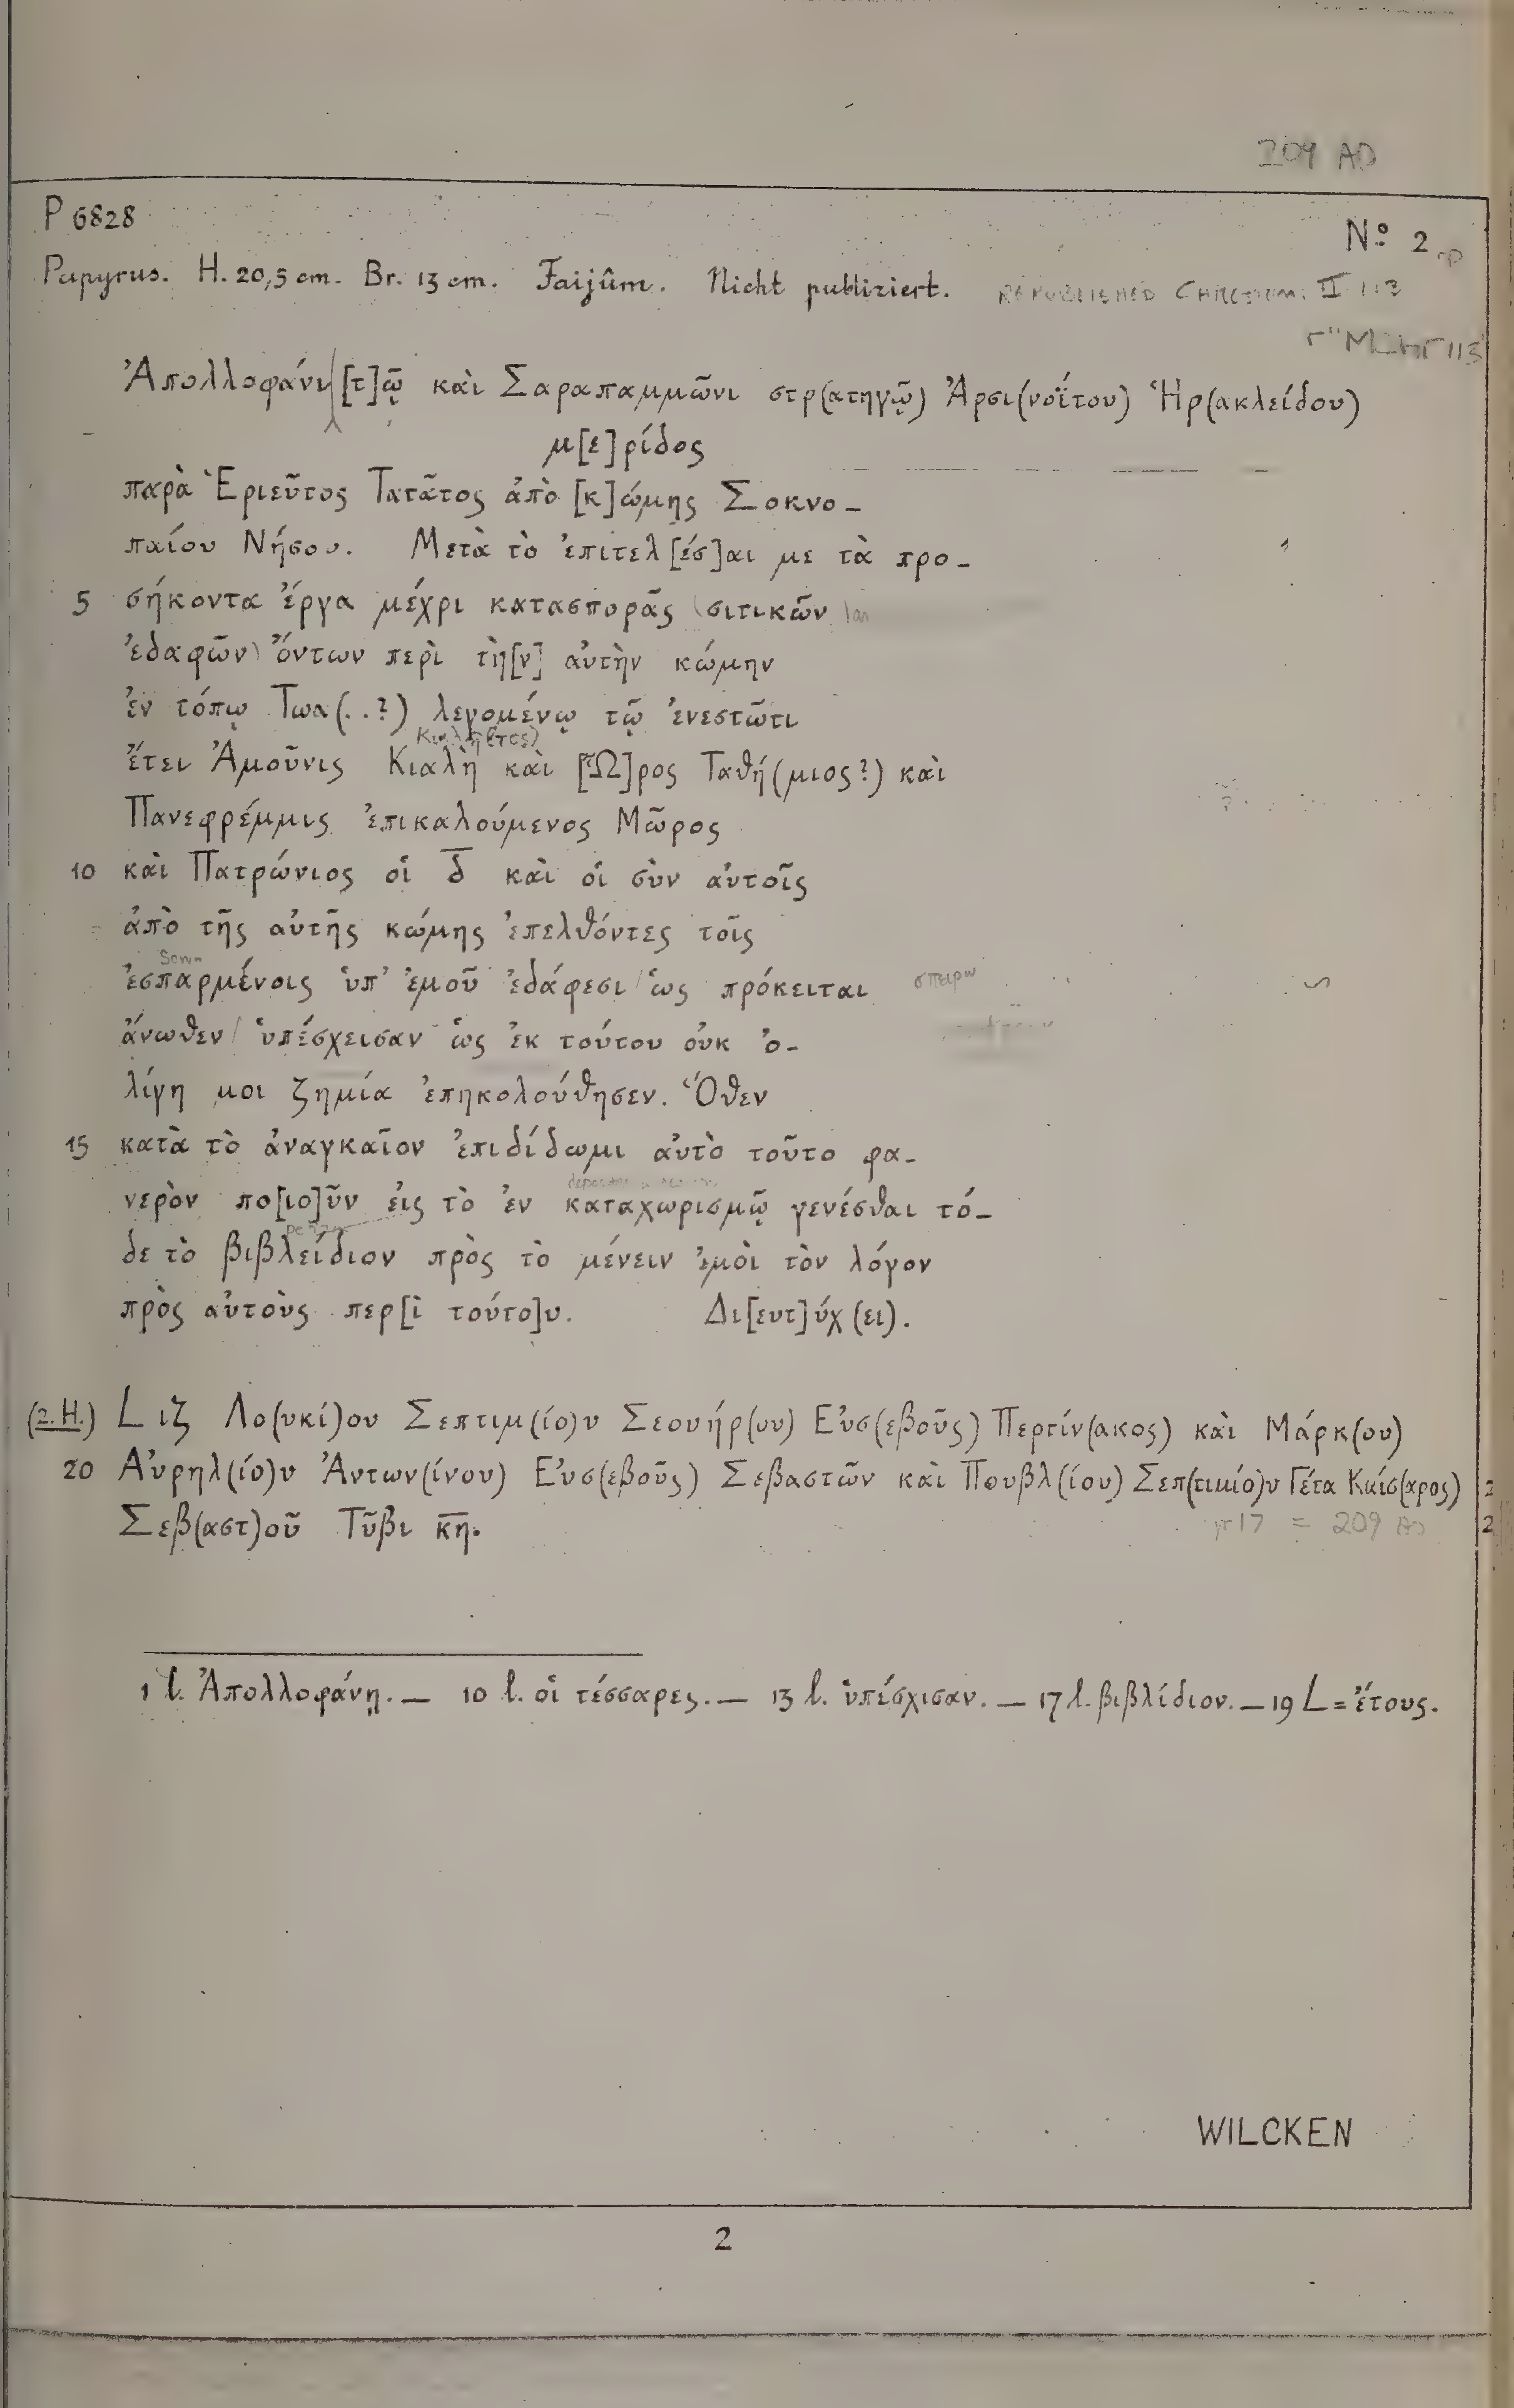 209 AD
P 6828
Nº 2
Papyrus. H. 20,5 cm. Br. 13 cm. Faijûm. Nicht publiziert. REPUBLISHED II 113
113
Ἀπολλοφάνι [τ]ῷ καὶ Σαραπαμμῶνι στρ(ατηγῷ) Ἀρσι(νοΐτου) Ἡρ(ακλείδου)
μ[ε]ρίδος
παρὰ Ἑριεῦτος Τατᾶτος ἀπὸ [κ]ώμης Σοκνο-
παίου Νήσου. Μετὰ τὸ ἐπιτελ[έσ]αι με τὰ προ-
5 σήκοντα ἔργα μέχρι κατασπορᾶς (σιτικῶν
ἐδαφῶν) ὄντων περὶ τὴ[ν] αὐτὴν κώμην
ἐν τόπῳ Τωα(..?) λεγομένῳ τῷ ἐνεστῶτι
ἔτει Ἀμοῦνις Κιαλὴ καὶ [Ὧ]ρος Ταθή(μιος?) καὶ
Πανεφρέμμις ἐπικαλούμενος Μῶρος
10 καὶ Πατρώνιος οἱ δ̅ καὶ οἱ σὺν αὐτοῖς
ἀπὸ τῆς αὐτῆς κώμης ἐπελθόντες τοῖς
ἐσπαρμένοις ὑπ' ἐμοῦ ἐδάφεσι / ὡς πρόκειται σπειρω
ἄνωθεν / ὑπέσχεισαν ὡς ἐκ τούτου οὐκ ὀ-
λίγη μοι ζημία ἐπηκολούθησεν. Ὅθεν
15 κατὰ τὸ ἀναγκαῖον ἐπιδίδωμι αὐτὸ τοῦτο φα-
νερὸν πο[ιο]ῦν εἰς τὸ ἐν καταχωρισμῷ γενέσθαι τό-
δε τὸ βιβλείδιον πρὸς τὸ μένειν ἐμοὶ τὸν λόγον
πρὸς αὐτοὺς περ[ὶ τούτο]υ. Δι[ευτ]ύχ(ει).
(2. H.) L ιζ Λο(υκί)ου Σεπτιμ(ίο)υ Σεουήρ(ου) Εὐσ(εβοῦς) Περτίν(ακος) καὶ Μάρκ(ου)
20 Αὐρηλ(ίο)υ Ἀντων(ίνου) Εὐσ(εβοῦς) Σεβαστῶν καὶ Πουβλ(ίου) Σεπ(τιμίο)υ Γέτα Καίσ(αρος)
Σεβ(αστ)οῦ Τῦβι κ̅η̅. yr 17 = 209 AD
1 l. Ἀπολλοφάνῃ. — 10 l. οἱ τέσσαρες. — 13 l. ὑπέσχισαν. — 17 l. βιβλίδιον. — 19 L = ἔτους.
WILCKEN
2